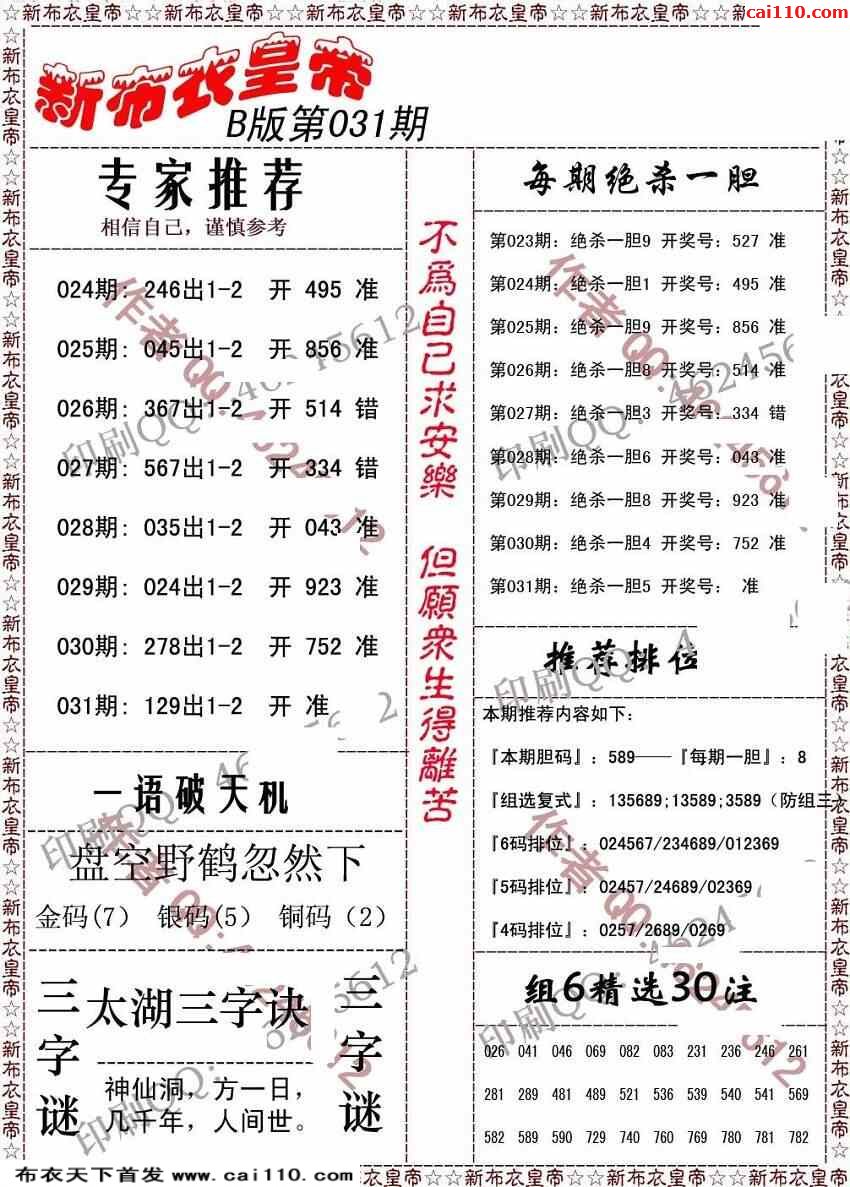 ☆新布衣皇帝☆☆新布衣皇帝☆☆新布衣皇帝☆☆新布衣皇帝☆☆新布衣皇帝☆☆新布衣皇帝☆☆新
cai110.com
新布衣皇帝
B版第031期
专家推荐
相信自己，谨慎参考
024期: 246出1-2 开 495 准
025期: 045出1-2 开 856 准
026期: 367出1-2 开 514 错
027期: 567出1-2 开 334 错
028期: 035出1-2 开 043 准
029期: 024出1-2 开 923 准
030期: 278出1-2 开 752 准
031期: 129出1-2 开 准
一语破天机
盘空野鹤忽然下
金码(7) 银码(5) 铜码（2）
三字谜
太湖三字诀
神仙洞，方一日，
几千年，人间世。
三字谜
不爲自己求安樂 但願衆生得離苦
每期绝杀一胆
第023期: 绝杀一胆9 开奖号: 527 准
第024期: 绝杀一胆1 开奖号: 495 准
第025期: 绝杀一胆9 开奖号: 856 准
第026期: 绝杀一胆8 开奖号: 514 准
第027期: 绝杀一胆3 开奖号: 334 错
第028期: 绝杀一胆6 开奖号: 043 准
第029期: 绝杀一胆8 开奖号: 923 准
第030期: 绝杀一胆4 开奖号: 752 准
第031期: 绝杀一胆5 开奖号: 准
推荐排位
本期推荐内容如下:
『本期胆码』: 589——『每期一胆』: 8
『组选复式』: 135689;13589;3589（防组三）
『6码排位』: 024567/234689/012369
『5码排位』: 02457/24689/02369
『4码排位』: 0257/2689/0269
组6精选30注
026 041 046 069 082 083 231 236 246 261
281 289 481 489 529 536 539 540 541 569
582 589 590 729 740 760 769 780 781 782
布衣天下首发 www.cai110.com
衣皇帝☆☆新布衣皇帝☆☆新布衣皇帝☆☆新布衣皇帝☆